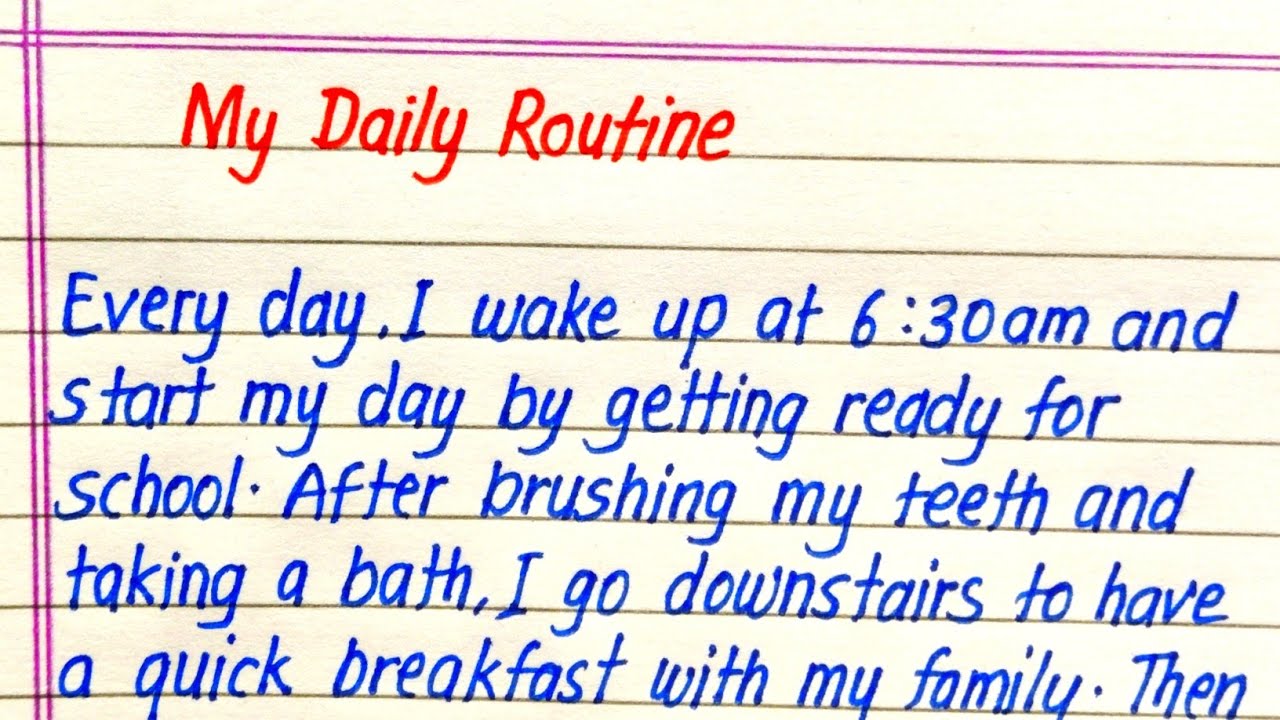 My Daily Routine
Every day, I wake up at 6:30am and
start my day by getting ready for
school. After brushing my teeth and
taking a bath, I go downstairs to have
a quick breakfast with my family. Then